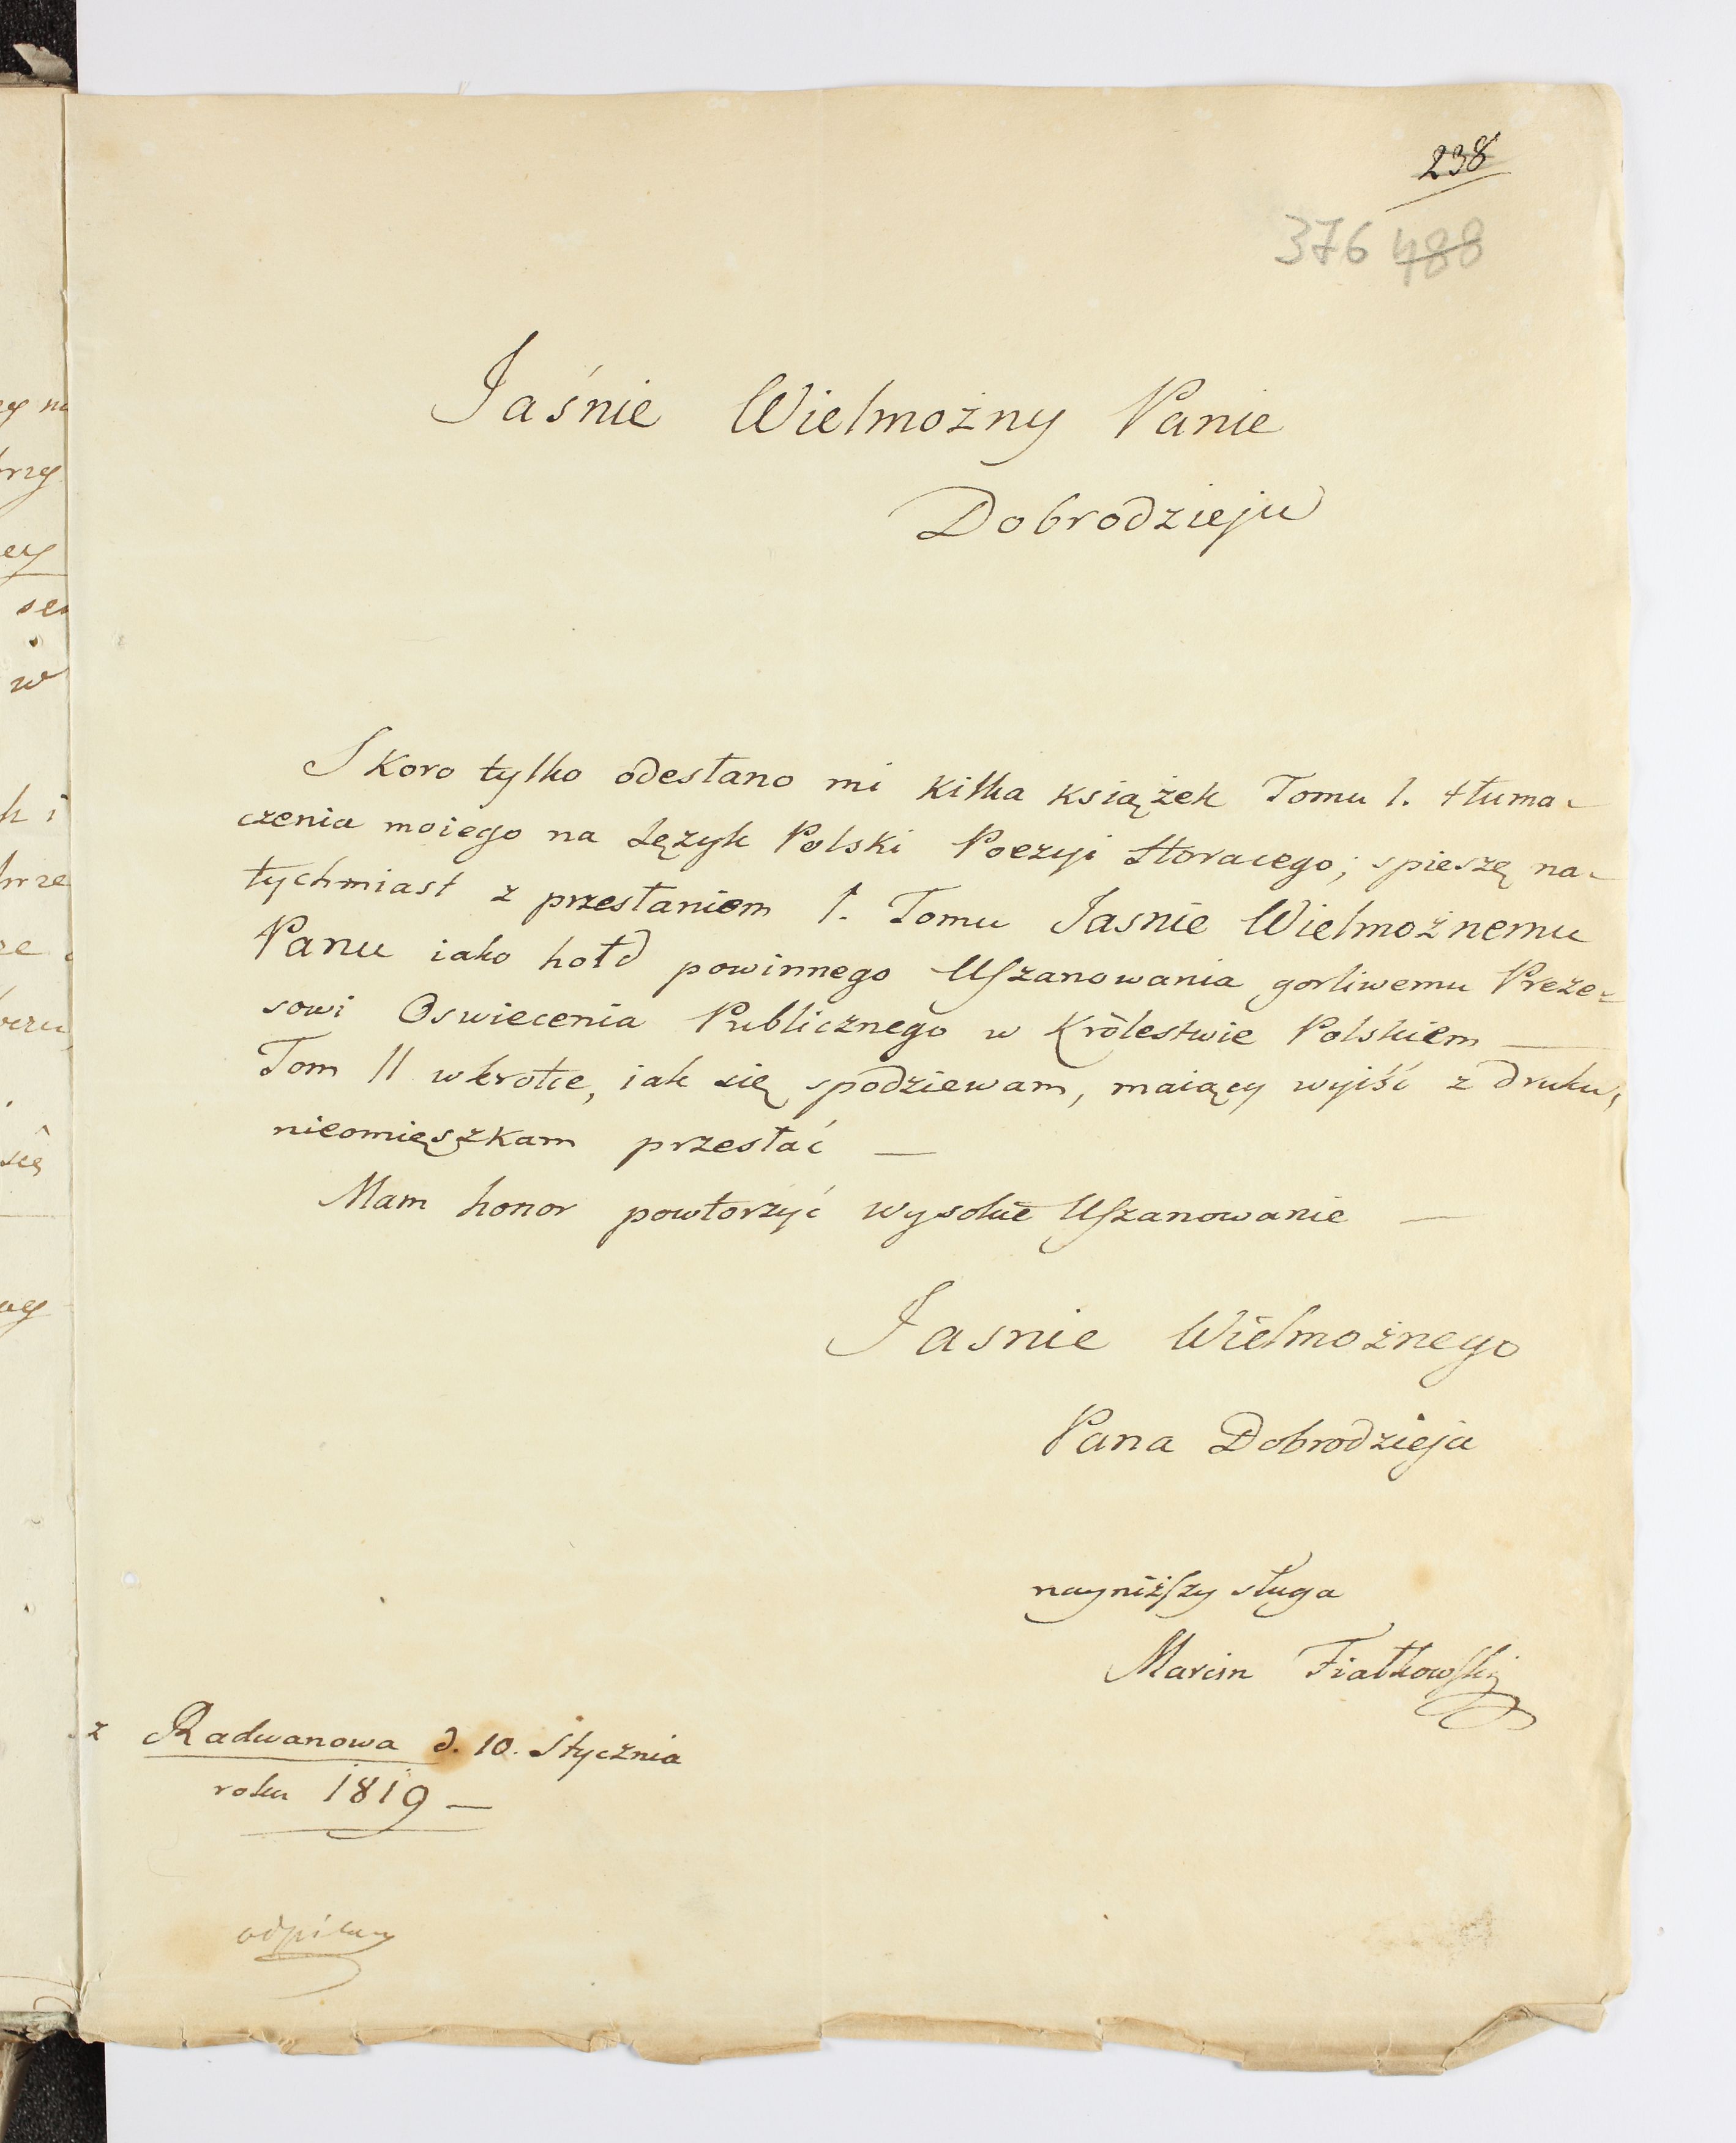 238
376 488
Jaśnie Wielmożny Panie
Dobrodzieju
Skoro tylko odesłano mi kilka książek Tomu 1. tłuma-
czenia moiego na Język Polski Poezyi Horacego; spieszę na-
tychmiast z przesłaniem 1. Tomu Jasnie Wielmożnemu
Panu iako hołd powinnego Uszanowania gorliwemu Preze-
sowi Oswiecenia Publicznego w Królestwie Polskiem —
Tom II wkrotce, iak się spodziewam, maiący wyiść z druku,
nieomięszkam przesłać —
Mam honor powtorzyć wysokie Uszanowanie —
Jasnie Wielmożnego
Pana Dobrodzieja
nayniższy sługa
Marcin Fiałkowski
z Radwanowa d. 10. Stycznia
roku 1819 —